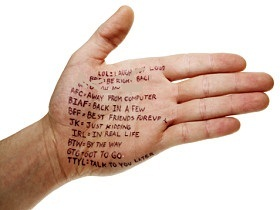 LOL: LAUGH OUT LOUD
BRB: BE RIGHT BACK
AFC: AWAY FROM COMPUTER
BIAF: BACK IN A FEW
BFF: BEST FRIENDS FOREVER
JK: JUST KIDDING
IRL: IN REAL LIFE
BTW: BY THE WAY
GTG: GOT TO GO
TTYL: TALK TO YOU LATER